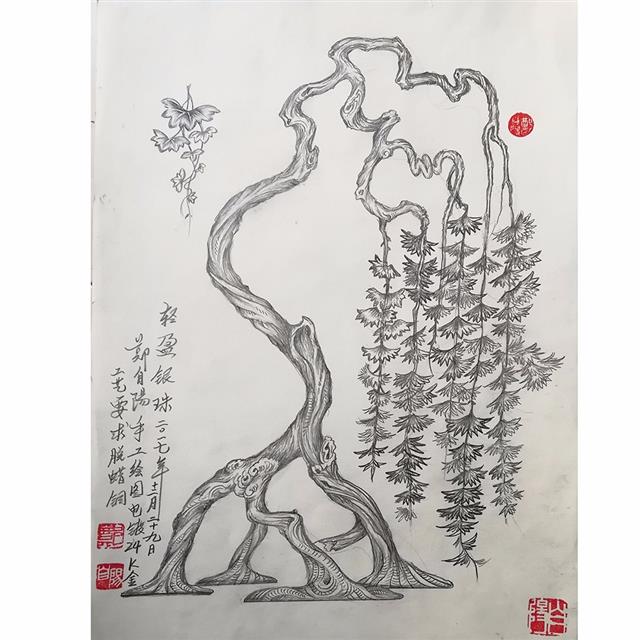 轻盈银珠二〇一七年十二月二十九日
郑自陽手工绘图电镀24K金
工艺要求脱蜡铜